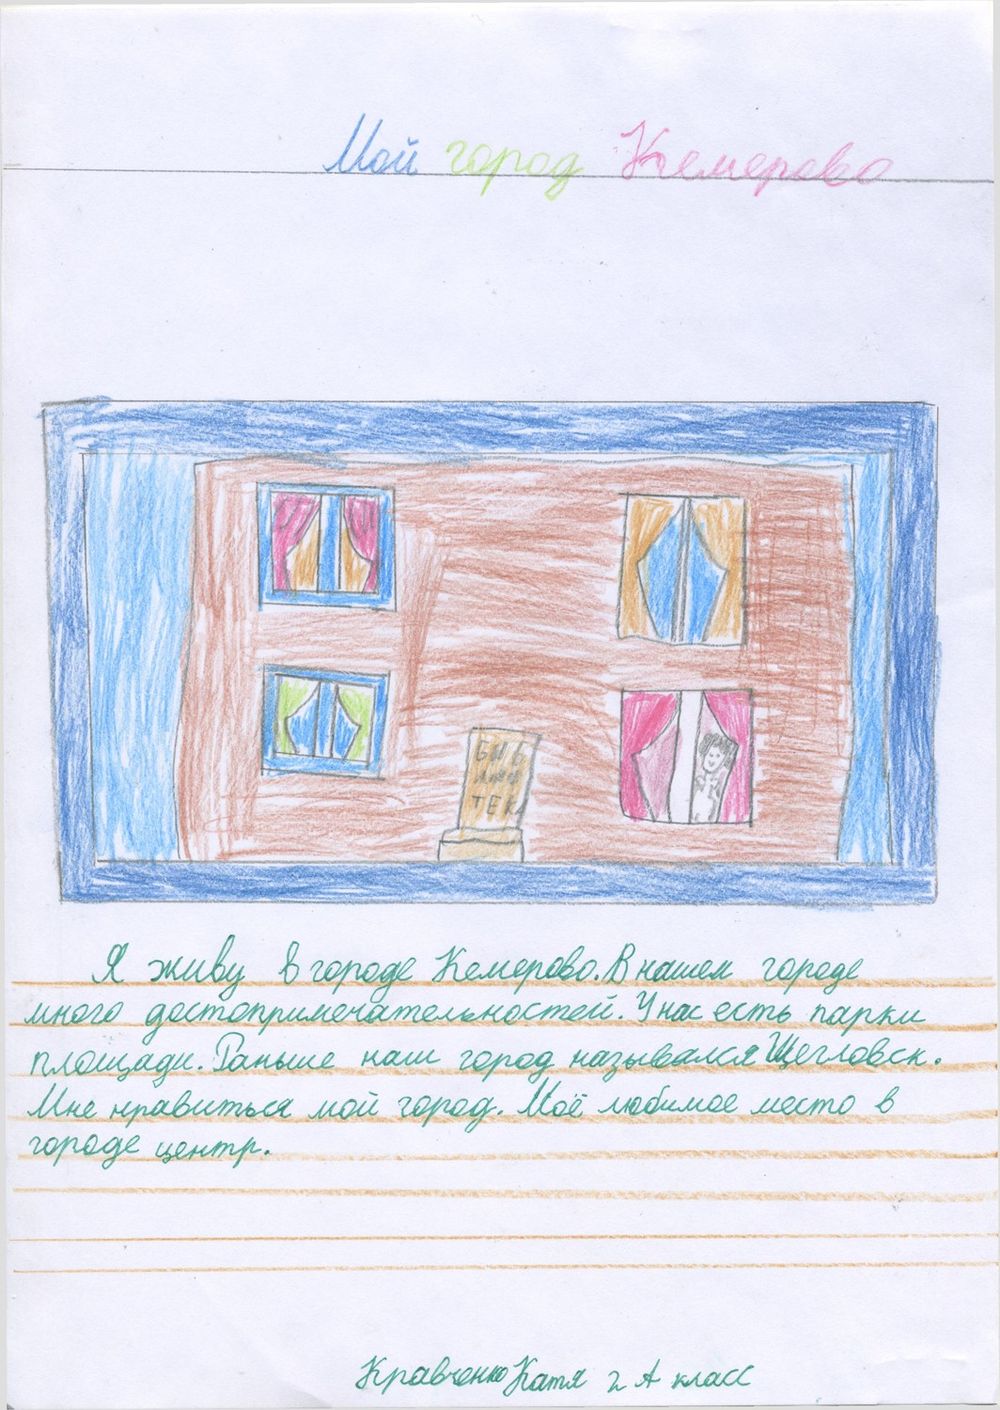 Мой город Кемерово
БИБ
ЛИО
ТЕКА
Я живу в городе Кемерово. В нашем городе
много достопримечательностей. У нас есть парки
площади. Раньше наш город назывался Щегловск.
Мне нравиться мой город. Моё любимое место в
городе центр.
Кравченко Катя 2 А класс